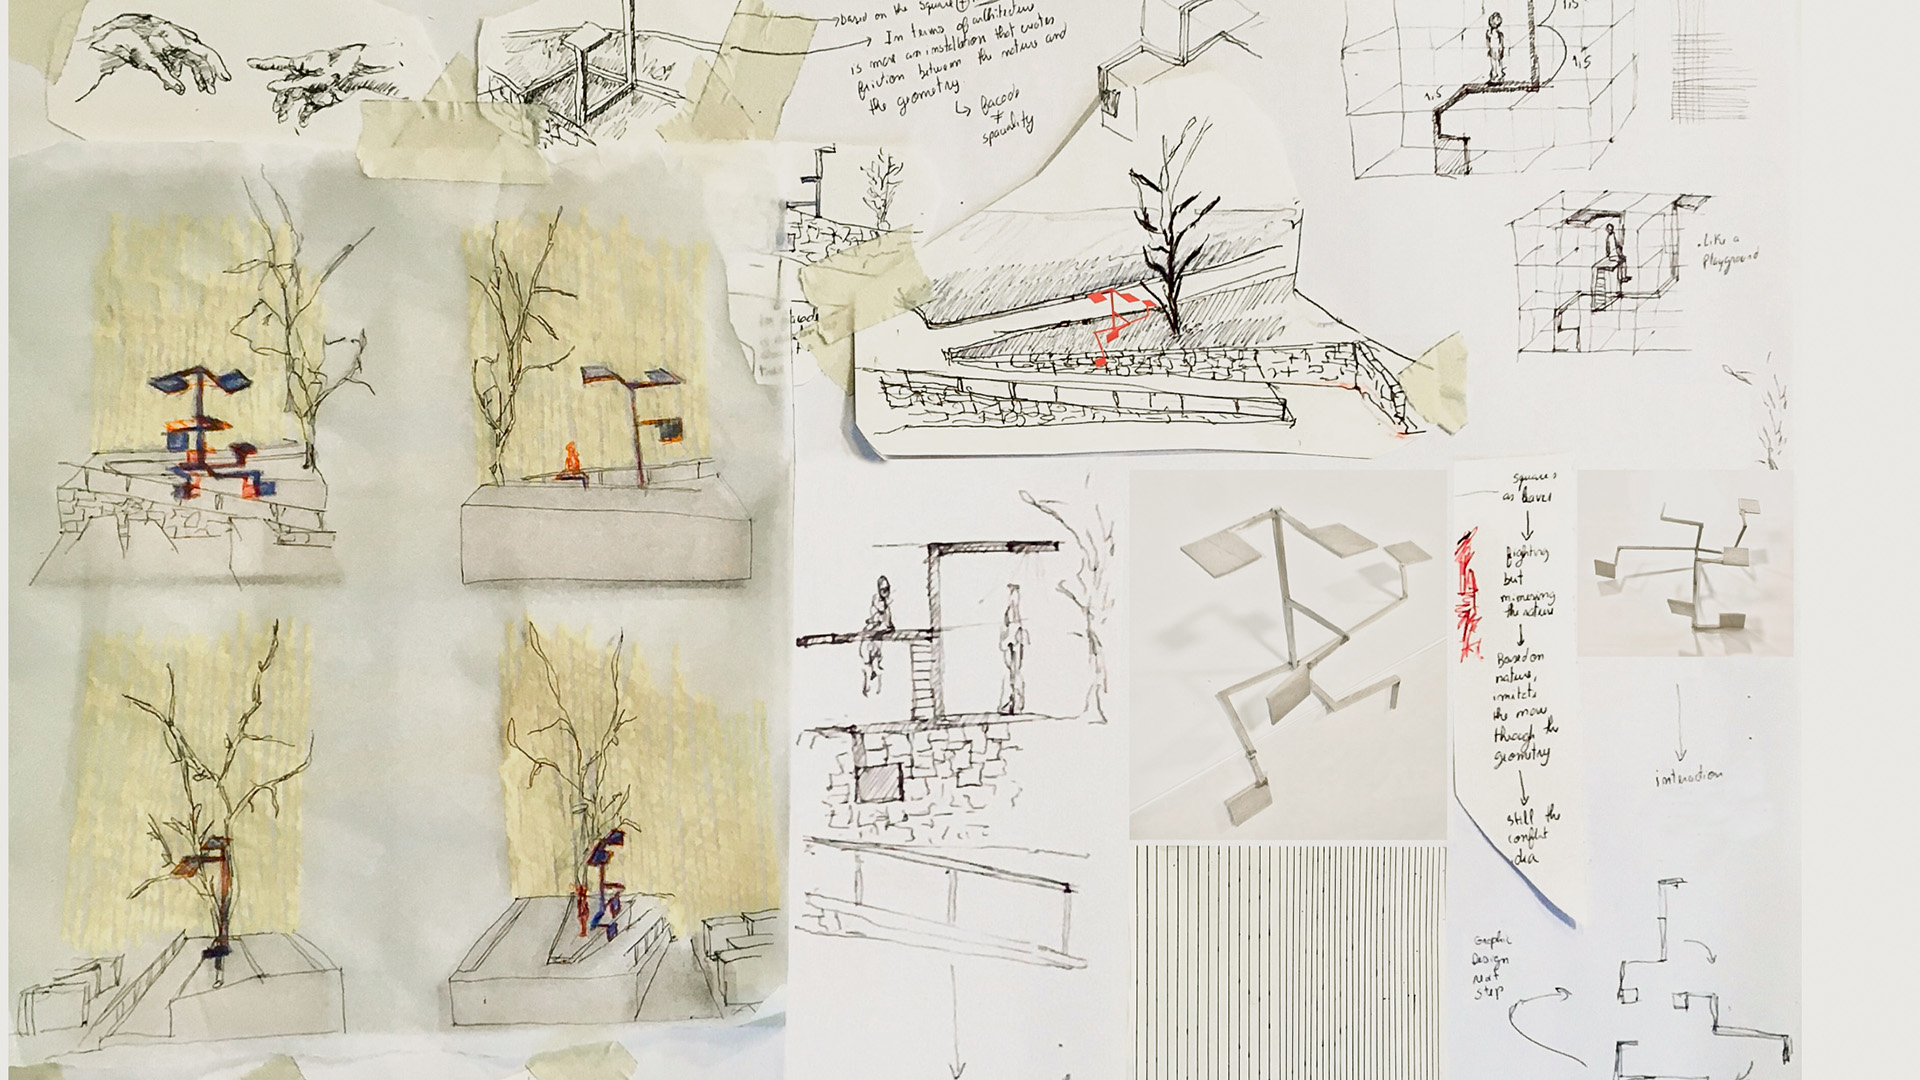 based on the square
In terms of architecture
is more an installation that creates
friction between the nature and
the geometry
↳ Facade
≠
spaciality
1,5
1,5
1,5
. Like a
playground
squares
as leaves
↓
fighting
but
mimicing
the nature
↓
Based on
nature,
imitate
the move
through the
geometry
↓
still the
conflict
idea
interaction
Graphic
Design
next
step